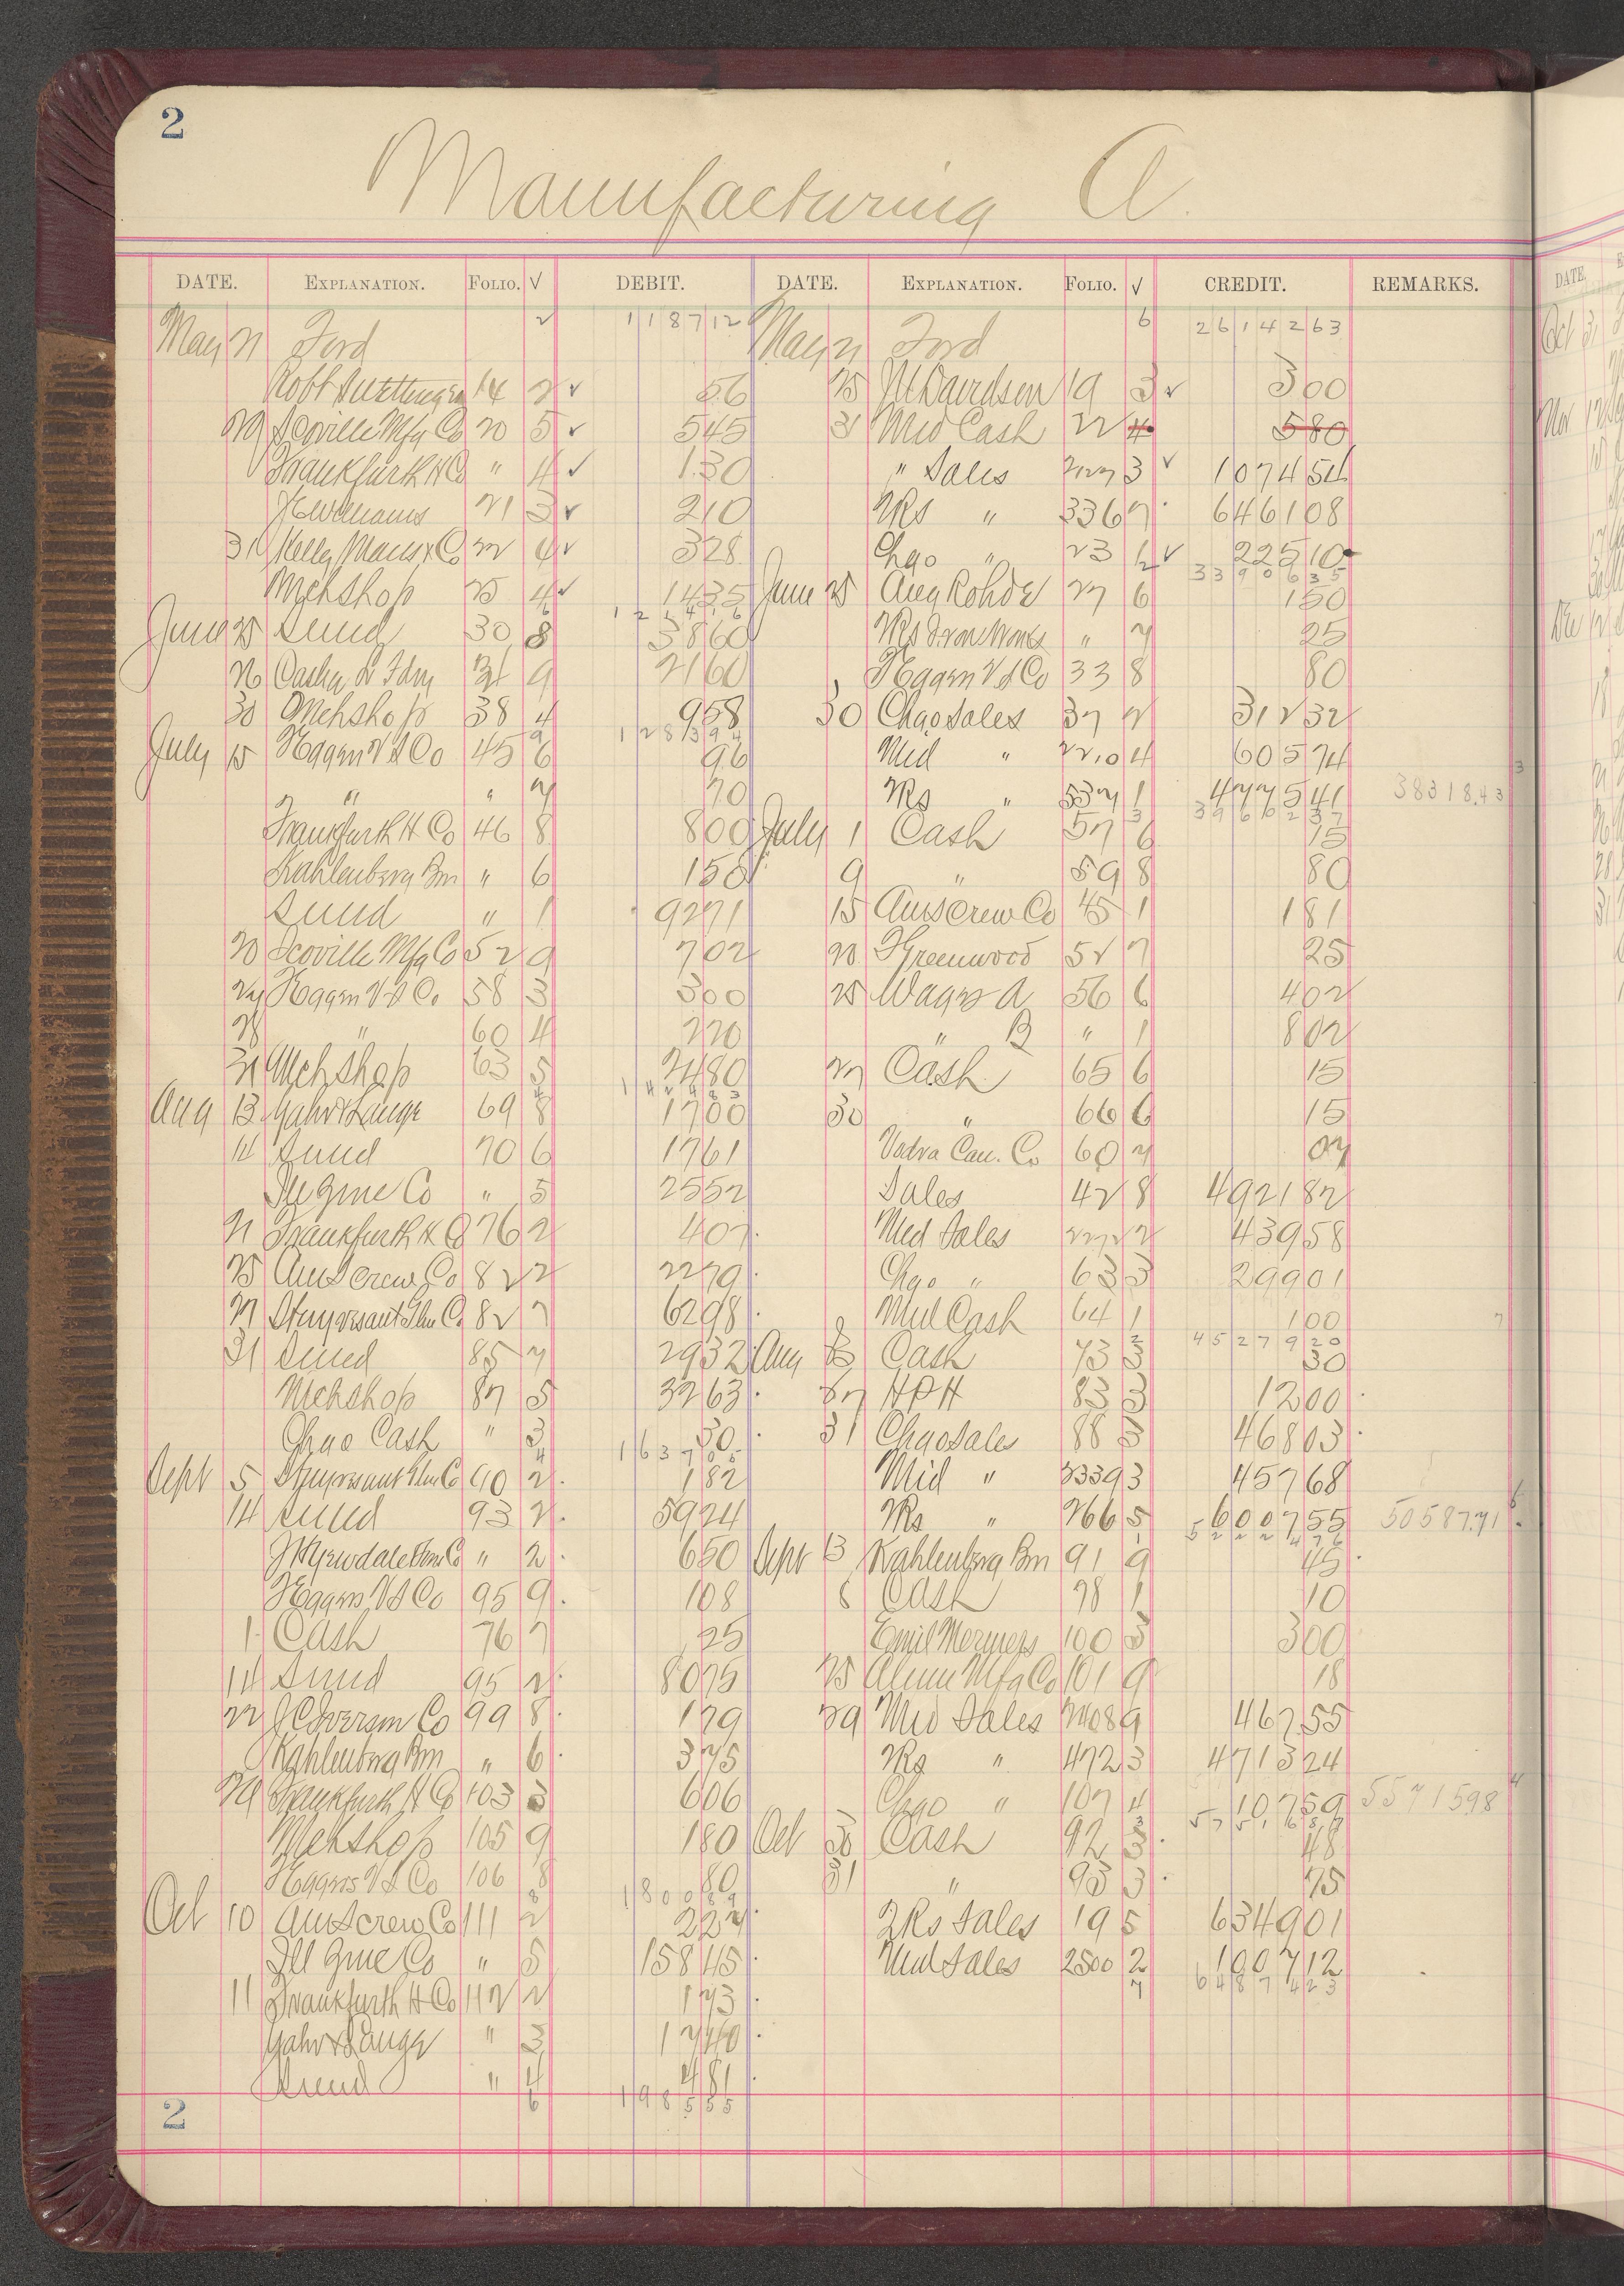 2
Manufacturing A.
DATE. EXPLANATION. FOLIO. √ DEBIT. DATE. EXPLANATION. FOLIO. √ CREDIT. REMARKS.
May 21 Ford 2 1187 12 May 21 Ford 6 26142 63
14 2 ✓ 56 25 19 3 ✓ 3 00
29 Scoville Mfg Co 20 5 ✓ 5 45 31 Mid Cash 22 4 5 80
Frankfurth H Co " 4 ✓ 1 30 " Sales 3 ✓ 1074 54
JE Williams 21 3 ✓ 2 10 2Rs " 336 7 6461 08
31 22 4 ✓ 3 28 Chgo " 23 ✓ 225 10
33906 35
Mchshop 25 4 ✓ 14 35 June 25 Aug Rohde 27 6 1 50
June 25 Sund 30 8 38 60 2Rs Iron Works " 7 25
26 9 21 60 Eggers V S Co 33 8 80
30 Mchshop 38 4 9 58 30 Chgo Sales 37 2 312 32
1283 94
July 15 Eggers V S Co 45 6 96 Mid " 4 605 74
" " 7 70 2Rs " 537 1 4775 41 38318.43
39602 37
Frankfurth H Co 46 8 8 00 July 1 Cash 57 6 15
Kahlenberg Bros " 6 1 50 9 " 59 8 80
Sund " 1 92 71 15 Am Screw Co 45 1 1 81
20 Scoville Mfg Co 52 9 7 02 20 F Greenwood 52 7 25
27 Eggers V S Co 58 3 3 00 25 Wages A 56 6 4 02
28 " 60 4 2 20 " B " 1 8 02
31 Mchshop 63 5 24 80 27 Cash 65 6 15
1424 83
Aug 13 Gahr & Lange 69 8 17 00 30 " 66 6 15
14 Sund 70 6 17 61 Co 60 7 07
Ill Zinc Co " 5 25 52 Sales 42 8 4921 82
21 Frankfurth H Co 76 2 4 07 Mid Sales 2 439 58
25 Am Screw Co 82 2 22 79 Chgo " 63 3 299 01
27 Co 82 7 62 98 Mid Cash 64 1 1 00
45279 20
31 Sund 85 7 29 32 Aug Cash 73 3 30
Mchshop 87 5 32 63 27 H P H 83 3 12 00
Chgo Cash " 3 30 31 Chgo Sales 88 3 468 03
Sept 5 Co 90 2 1 82 Mid " 3 457 68
14 Sund 93 2 59 24 2Rs " 766 5 6007 55 50587.71
Co " 2 6 50 Sept 13 Kahlenberg Bros 91 9 45
Eggers V S Co 95 9 1 08 Cash 98 1 10
1 Cash 76 7 25 Emil Mermers 100 3 3 00
14 Sund 95 2 80 75 25 Alum Mfg Co 101 9 18
22 JC Iverson Co 99 8 1 79 29 Mid Sales 9 467 55
Kahlenberg Bros " 6 3 75 2Rs " 472 3 4713 24
29 Frankfurth H Co 103 3 6 06 Chgo " 107 4 107 59 55715 98
Mchshop 105 9 1 80 Oct 30 Cash 92 3 48
Eggers V S Co 106 8 80 31 " 93 3 75
Oct 10 Am Screw Co 111 2 2 27 2Rs Sales 19 5 6349 01
Ill Zinc Co " 5 158 45 Mid Sales 2500 2 1007 12
64874 23
11 Frankfurth H Co 112 2 1 73
Gahr & Lange " 3 17 40
Sund " 4 4 81
1985 55
2